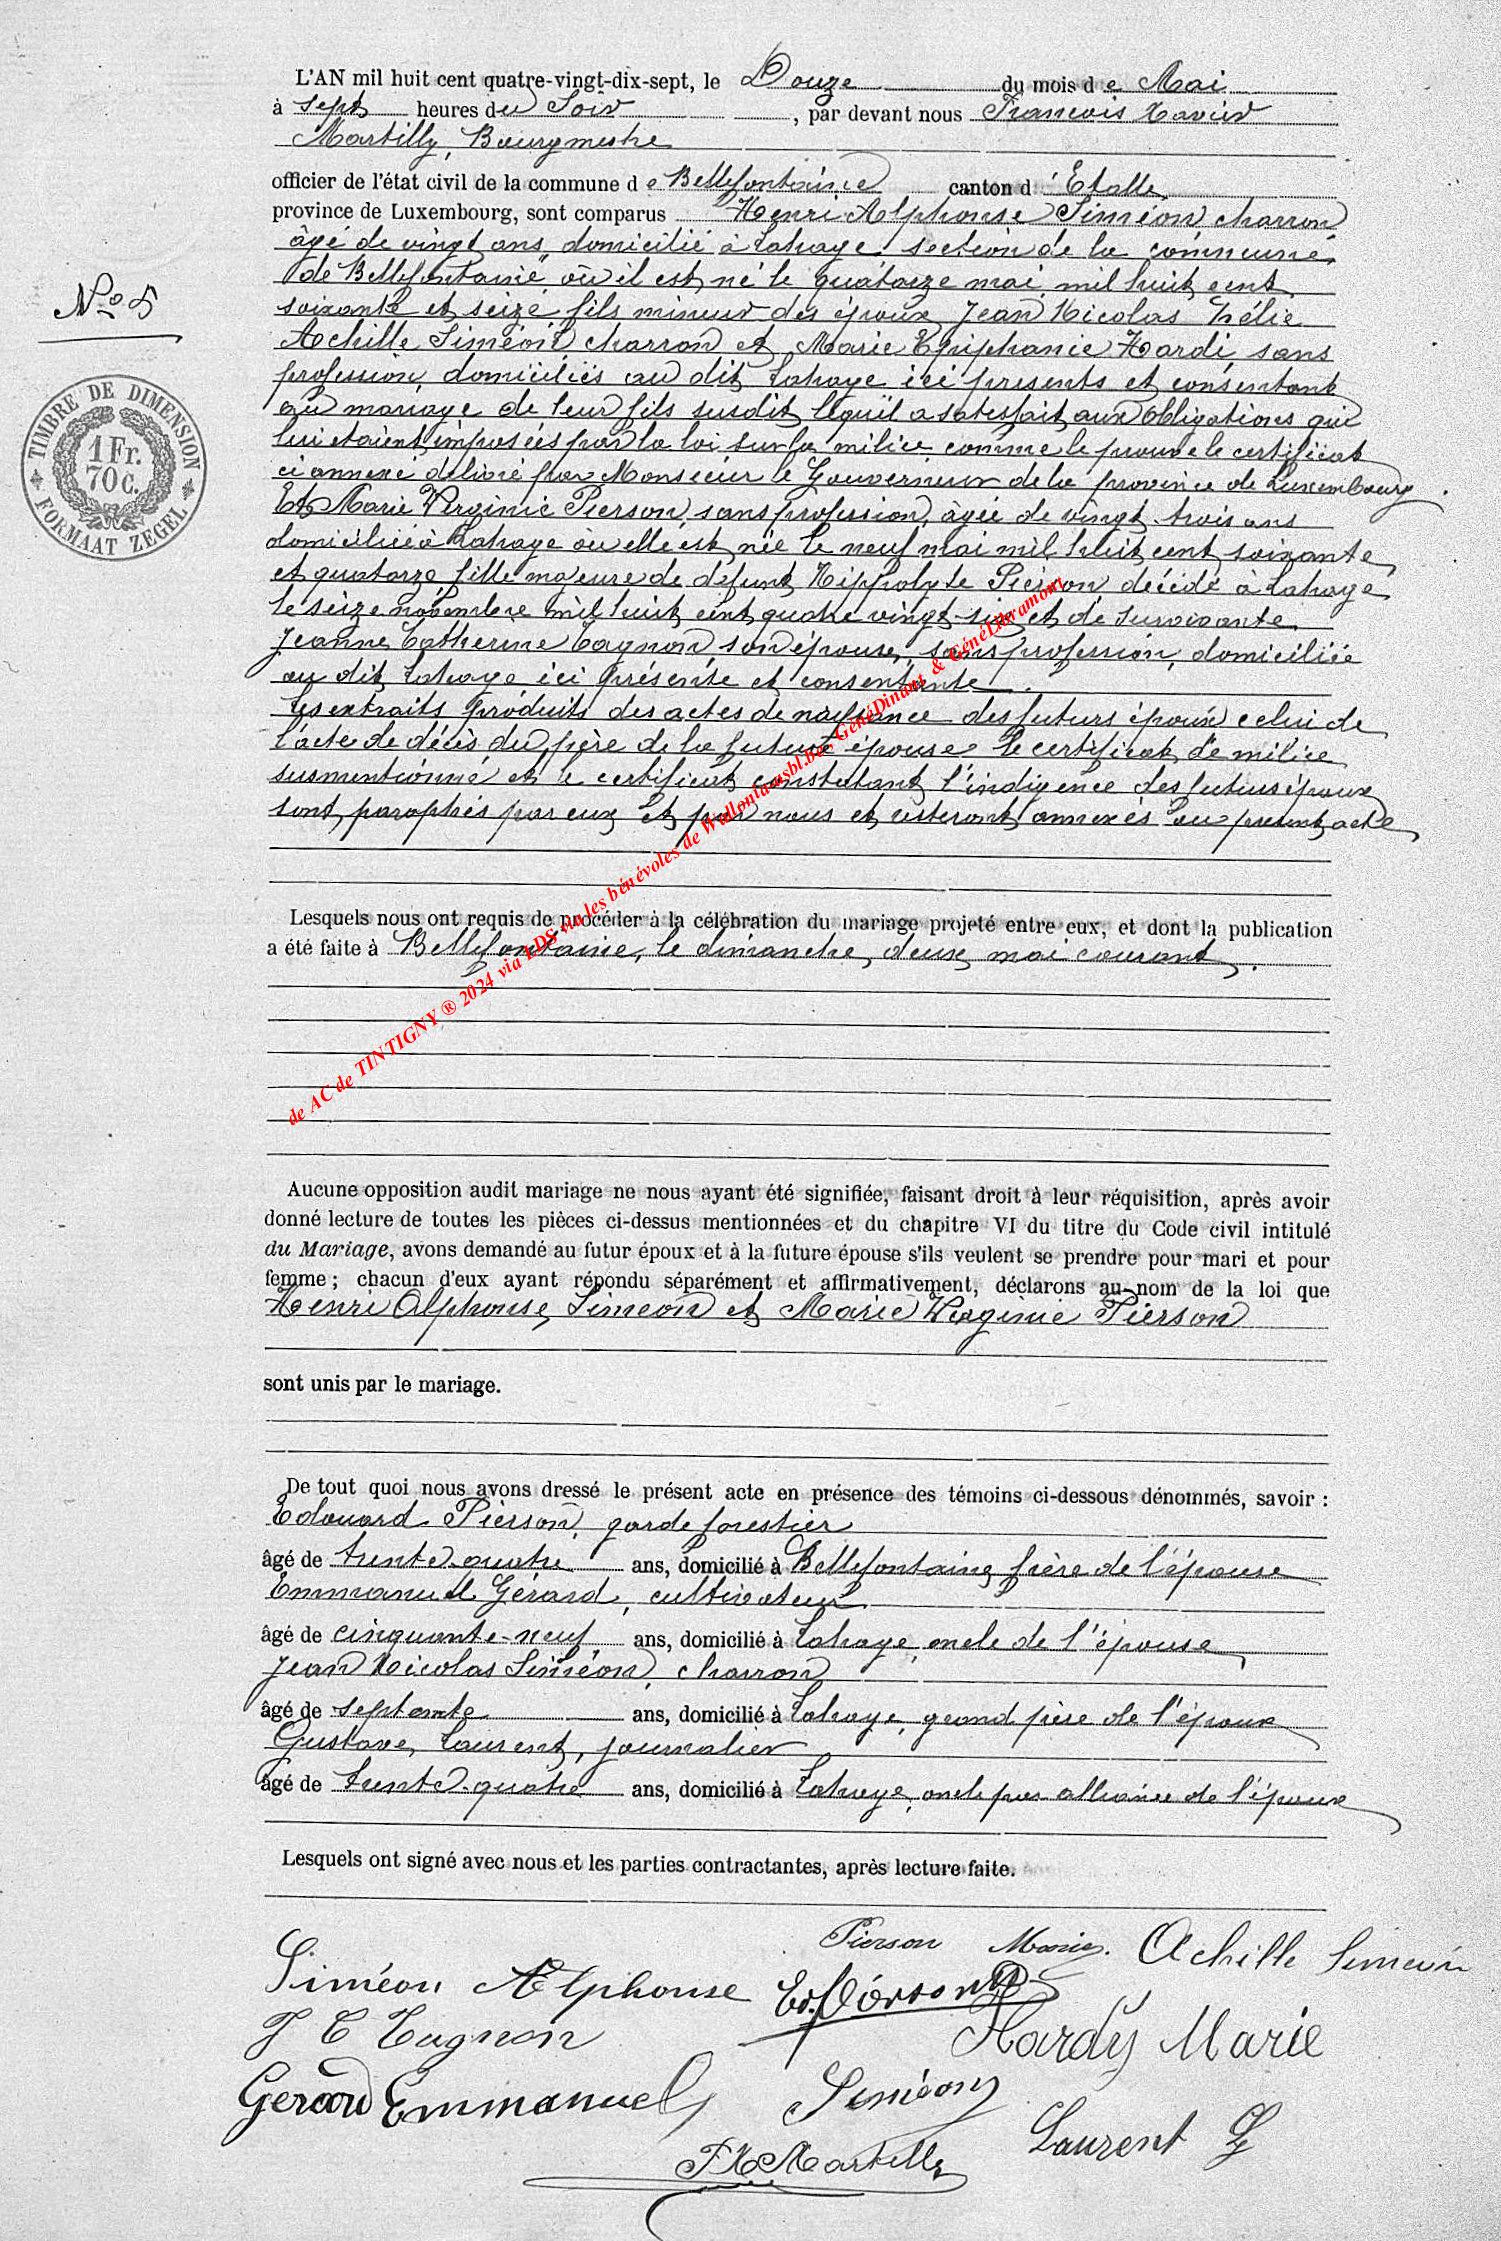 L'AN mil huit cent quatre-vingt-dix-sept, le Douze du mois de Mai
à sept heures du Soir, par devant nous François Xavier
Martilly, Bourgmestre
officier de l'état civil de la commune de Bellefontaine canton d'Etalle
province de Luxembourg, sont comparus Henri Alphonse Siméon charron
âgé de vingt ans, domicilié à Lahage section de la commune
de Bellefontaine, où il est né le quatorze mai mil huit cent
soixante et seize fils mineur des époux Jean Nicolas Hélie
Achille Siméon charron et Marie Epiphanie Hardi sans
profession, domiciliés au dit Lahage ici présents et consentant
au mariage de leur fils susdit lequel a satisfait aux obligations qui
lui étaient imposées par la loi sur la milice comme le prouve le certificat
ci annexé délivré par Monsieur le Gouverneur de la province de Luxembourg
Et Marie Virginie Pierson, sans profession, âgée de vingt trois ans
domiciliée à Lahage où elle est née le neuf mai mil huit cent soixante
et quatorze, fille majeure de défunt Hippolyte Pierson décédé à Lahage
le seize novembre mil huit cent quatre vingt-six et de survivante
Jeanne Catherine Tagnon, son épouse, sans profession, domiciliée
au dit Lahage ici présente et consentante.
Les extraits produits des actes de naissance des futurs époux celui de
l'acte de décès du père de la future épouse le certificat de milice
susmentionné et le certificat constatant l'indigence des futurs époux
sont paraphés par eux et par nous et resteront annexés au présent acte
N° 5
TIMBRE DE DIMENSION
1 Fr.
70 C.
FORMAAT ZEGEL
Lesquels nous ont requis de procéder à la célébration du mariage projeté entre eux, et dont la publication
a été faite à Bellefontaine, le dimanche, deux mai courant.
de AC de TINTIGNY ® 2024 via LDS via les bénévoles de Walloniaasbl.be, GénéDinant & GénéLibramont
Aucune opposition audit mariage ne nous ayant été signifiée, faisant droit à leur réquisition, après avoir
donné lecture de toutes les pièces ci-dessus mentionnées et du chapitre VI du titre du Code civil intitulé
du Mariage, avons demandé au futur époux et à la future épouse s'ils veulent se prendre pour mari et pour
femme ; chacun d'eux ayant répondu séparément et affirmativement, déclarons au nom de la loi que
Henri Alphonse Siméon et Marie Virginie Pierson
sont unis par le mariage.
De tout quoi nous avons dressé le présent acte en présence des témoins ci-dessous dénommés, savoir :
Edouard Pierson, garde forestier
âgé de trente-quatre ans, domicilié à Bellefontaine frère de l'épouse
Emmanuel Gérard, cultivateur
âgé de cinquante-neuf ans, domicilié à Lahage, oncle de l'épouse
Jean Nicolas Siméon, charron
âgé de septante ans, domicilié à Lahage, grand père de l'époux
Gustave Laurent, journalier
âgé de trente-quatre ans, domicilié à Lahage, oncle par alliance de l'époux
Lesquels ont signé avec nous et les parties contractantes, après lecture faite.
Pierson Marie. Achille Simeon
Siméon Alphonse Ed. Pierson
J C Tagnon Hardy Marie
Gerard Emmanuel Siméon
Laurent G
F X Martilly